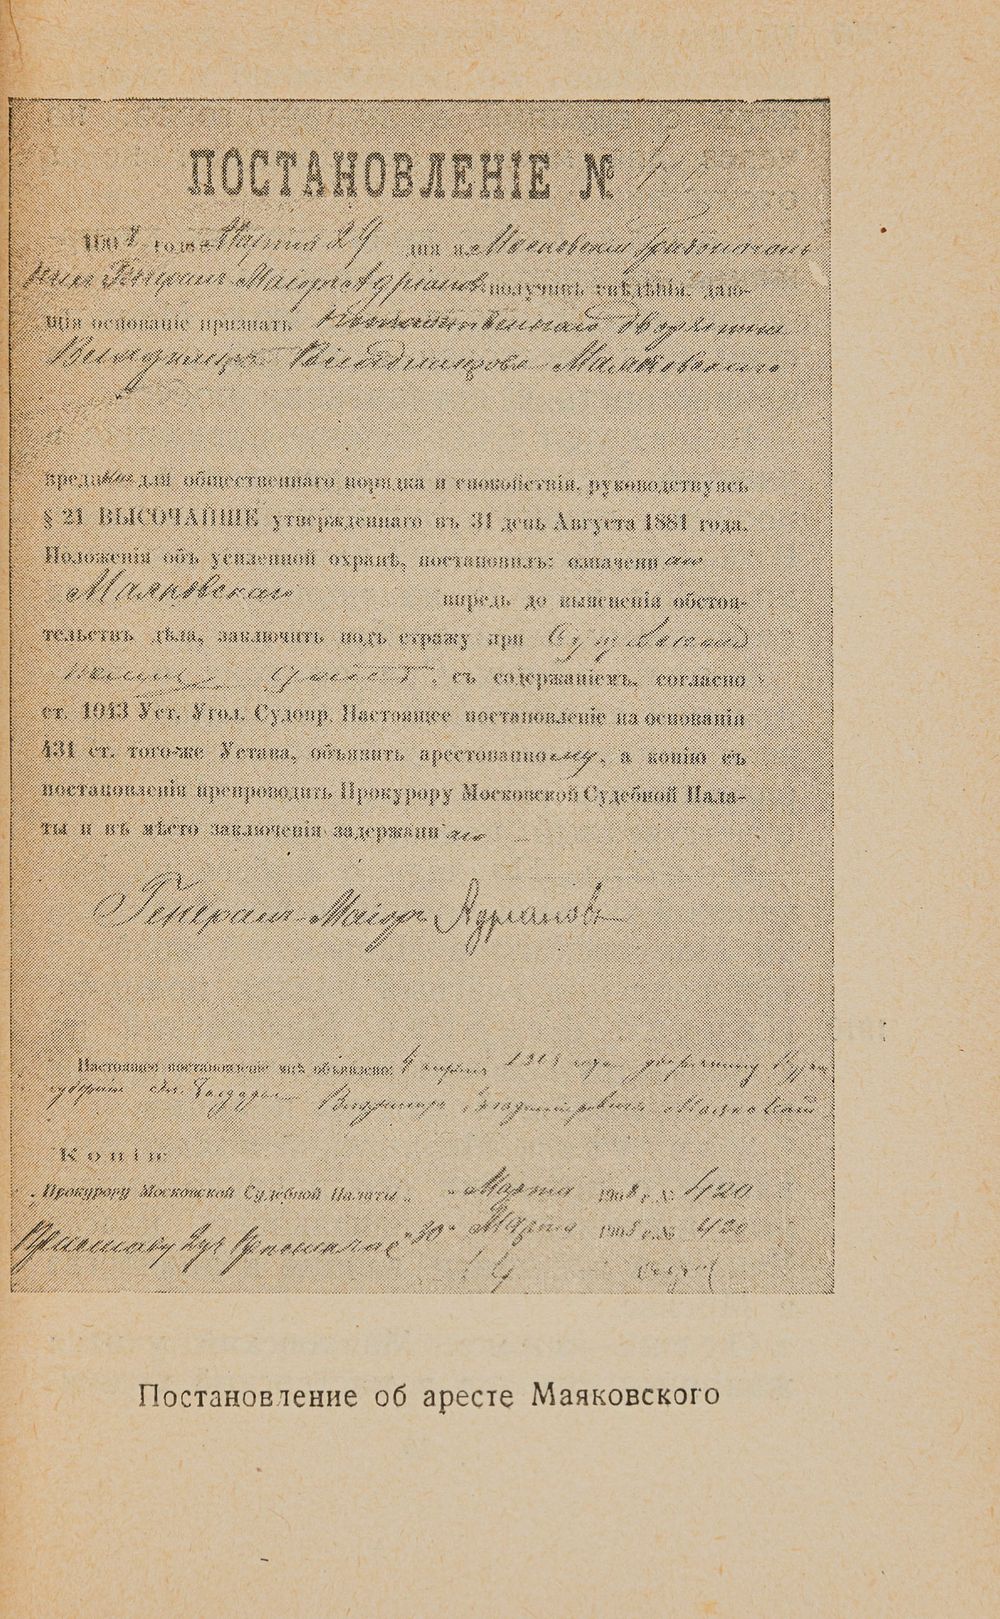 ПОСТАНОВЛЕНІЕ №
1908 года Марта 29 дня я, Московскій Градоначаль
никъ Генералъ-Маіоръ Адріановъ получивъ свѣдѣнія, даю-
щія основаніе признать потомственнаго дворянина
Владиміра Владимірова Маяковскаго
вреднымъ для общественнаго порядка и спокойствія, руководствуясь
§ 21 ВЫСОЧАЙШЕ утвержденнаго въ 31 день Августа 1881 года,
Положенія объ усиленной охранѣ, постановилъ: означеннаго
Маяковскаго впредь до выясненія обстоя-
тельствъ дѣла, заключить подъ стражу при Сущевскомъ
полиц. домѣ, съ содержаніемъ, согласно
ст. 1043 Уст. Угол. Судопр. Настоящее постановленіе на основаніи
431 ст. того-же Устава, объявить арестованному, а копію съ
постановленія препроводить Прокурору Московской Судебной Пала-
ты и въ мѣсто заключенія задержаннаго
Генералъ-Маіоръ Адріановъ
Настоящее постановленіе мнѣ объявлено: апрѣля года дворянину
губерніи Владиміръ Владиміровичъ Маяковскій
Копія:
„Прокурору Московской Судебной Палаты„ „ Марта 1908 г. № 420
„30„ Марта 1908 г. № 420
Постановление об аресте Маяковского